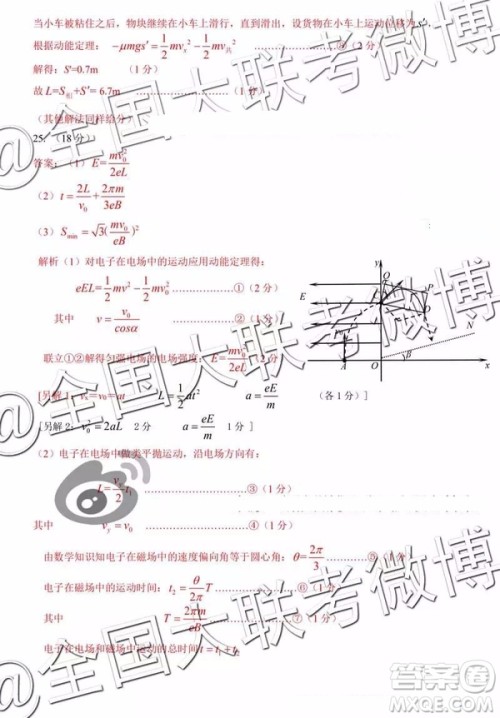 当小车被粘住之后，物块继续在小车上滑行，直到滑出，设货物在小车上运动位移为s′
根据动能定理： -μmgs′=1/2mvₓ²-1/2mv共² ……④（2分）
解得：S′=0.7m （1分）
故 L=S相+S′= 6.7m ……（1分）
（其他解法同样给分）
25.（18分）
答案：（1）E=mv₀²/2eL
（2）t=2L/v₀+2πm/3eB
（3）Smin=√3(mv₀/eB)²
解析（1）对电子在电场中的运动应用动能定理得：
eEL=1/2mv²-1/2mv₀² ……①（2分）
其中 v=v₀/cosα ……②（1分）
联立①②解得匀强电场的电场强度：E=mv₀²/2eL（2分
[另解1： vₓ=v₀=at L=1/2at² a=eE/m （各1分）
[另解2：v₀²=2aL 2分 a=eE/m 1分 ]
（2）电子在电场中做类平抛运动，沿电场方向有：
L=/2 t₁ ……③（1分）
其中 vᵧ=v₀ ……④（1分）
由数学知识知电子在磁场中的速度偏向角等于圆心角：θ=2π/3 ……⑤（1分）
电子在磁场中的运动时间：t₂=θ/2πT ……⑥（1分）
其中 T=2πm/eB ……⑦（1分）
电子在电场和磁场中运动的总时间t=t₁+t₂
y
Q
E
P
N
A
O
β
x
@全国大联考微博
@全国大联考微博
@全国大联考微博
答案圈
MXQE.COM